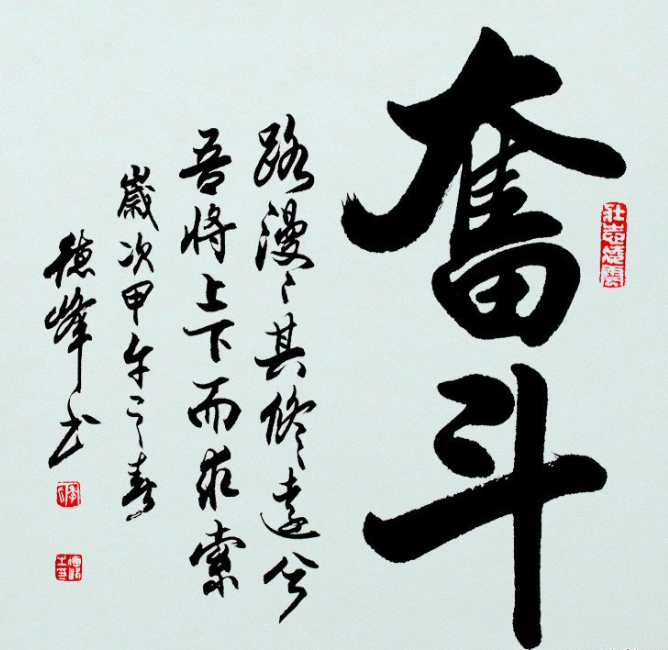 壮志凌雲
奮斗
路漫〻其修遠兮
吾将上下而求索
歲次甲午之春
德峰书